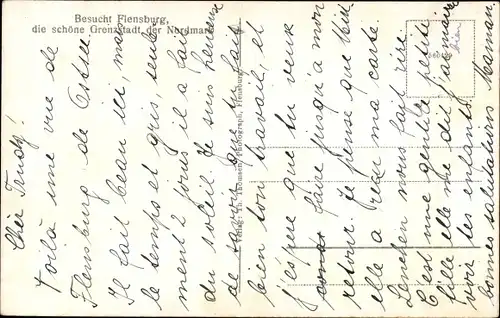 Besucht Flensburg,
die schöne Grenzstadt der Nordmark
Verlag: Th. Thomsen, Photograph, Flensburg
Cher Trudy!
Voilà une vue de
Flensburg de Ostsee.
Il fait beau ici, mais
le temps et gris, seule
ment 2 jours il a fait
du soleil. Je suis heureux
de savoir que tu fait
bien ton travail, et
j'espère que tu veux
faire jusqu'à mon
retour. Je pense que
elle a reçu ma carte.
Lenchen nous fait rire.
C'est une gentille petite
fille elle me dit j'aimais bien
voir tes enfants,
bonnes salutations Maman.